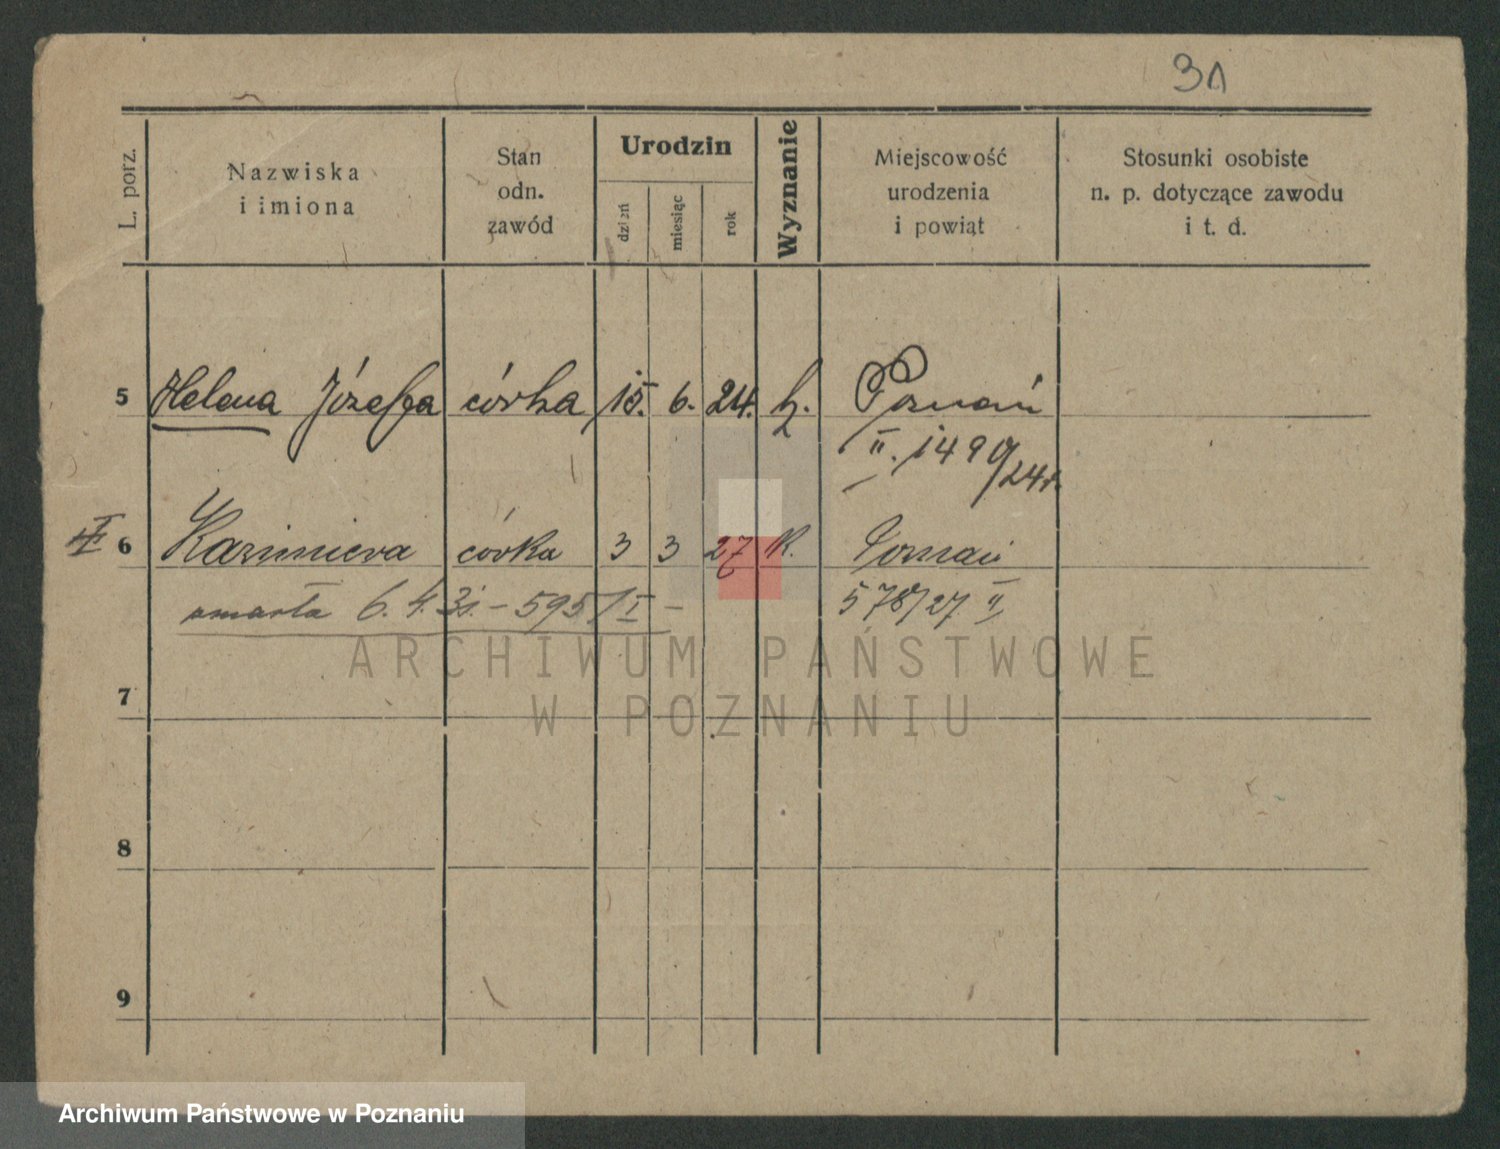 31
L. porz.
Nazwiska
i imiona
Stan
odn.
zawód
Urodzin
dzień
miesiąc
rok
Wyznanie
Miejscowość
urodzenia
i powiąt
Stosunki osobiste
n. p. dotyczące zawodu
i t. d.
5 Helena Józefa córka 15. 6. 24. k. Poznań
II. 1490/24r.
6 Kazimiera córka 3 3 27 K. Poznań
umarła 6.4.31. – 595/I – 578/27. II,
7
8
9
ARCHIWUM PAŃSTWOWE
W POZNANIU
Archiwum Państwowe w Poznaniu